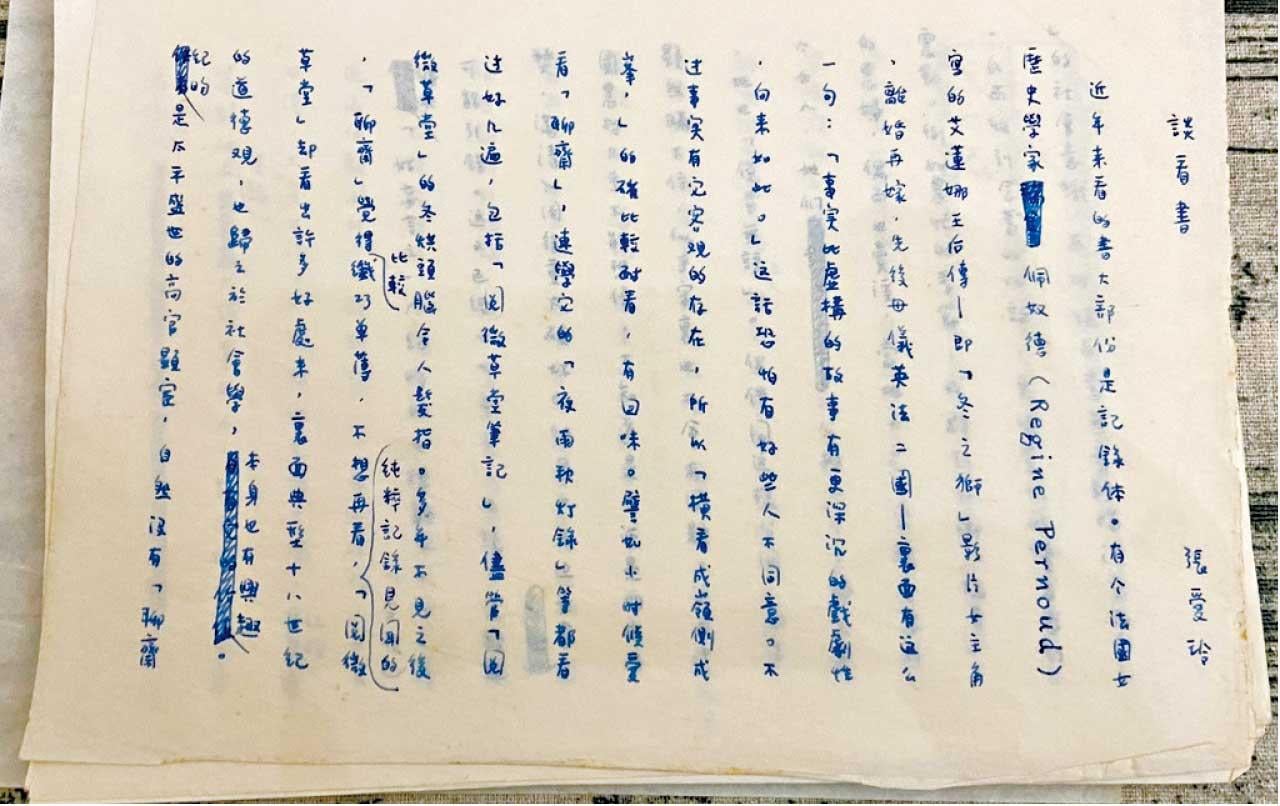 談看書
張愛玲
近年来看的書大部份是記錄体。有个法國女
歷史學家佩奴德（Regine Pernoud）
寫的艾蓮娜王后傳—即「冬之獅」影片女主角
，離婚再嫁，先後母儀英法二國—裏面有這么
一句：「事实比虛構的故事有更深沉的戲劇性
，向来如此。」這話恐怕有好些人不同意。不
过事实有它客观的存在，所以「橫看成嶺側成
峯，」的確比較耐看，有回味。譬如小时候愛
看「聊齋」，連學它的「夜雨秋灯錄」等都看
过好几遍，包括「阅微草堂筆記」，儘管「阅
微草堂」的冬烘頭腦令人髮指。多年不見之後
，「聊齋」覺得比較纖巧單薄，不想再看，純粹記錄見闻的「阅微
草堂」却看出許多好處来，裏面典型十八世紀
的道德观，也歸之於社會學，本身也有興趣。
紀昀是太平盛世的高官顯宦，自然没有「聊齋